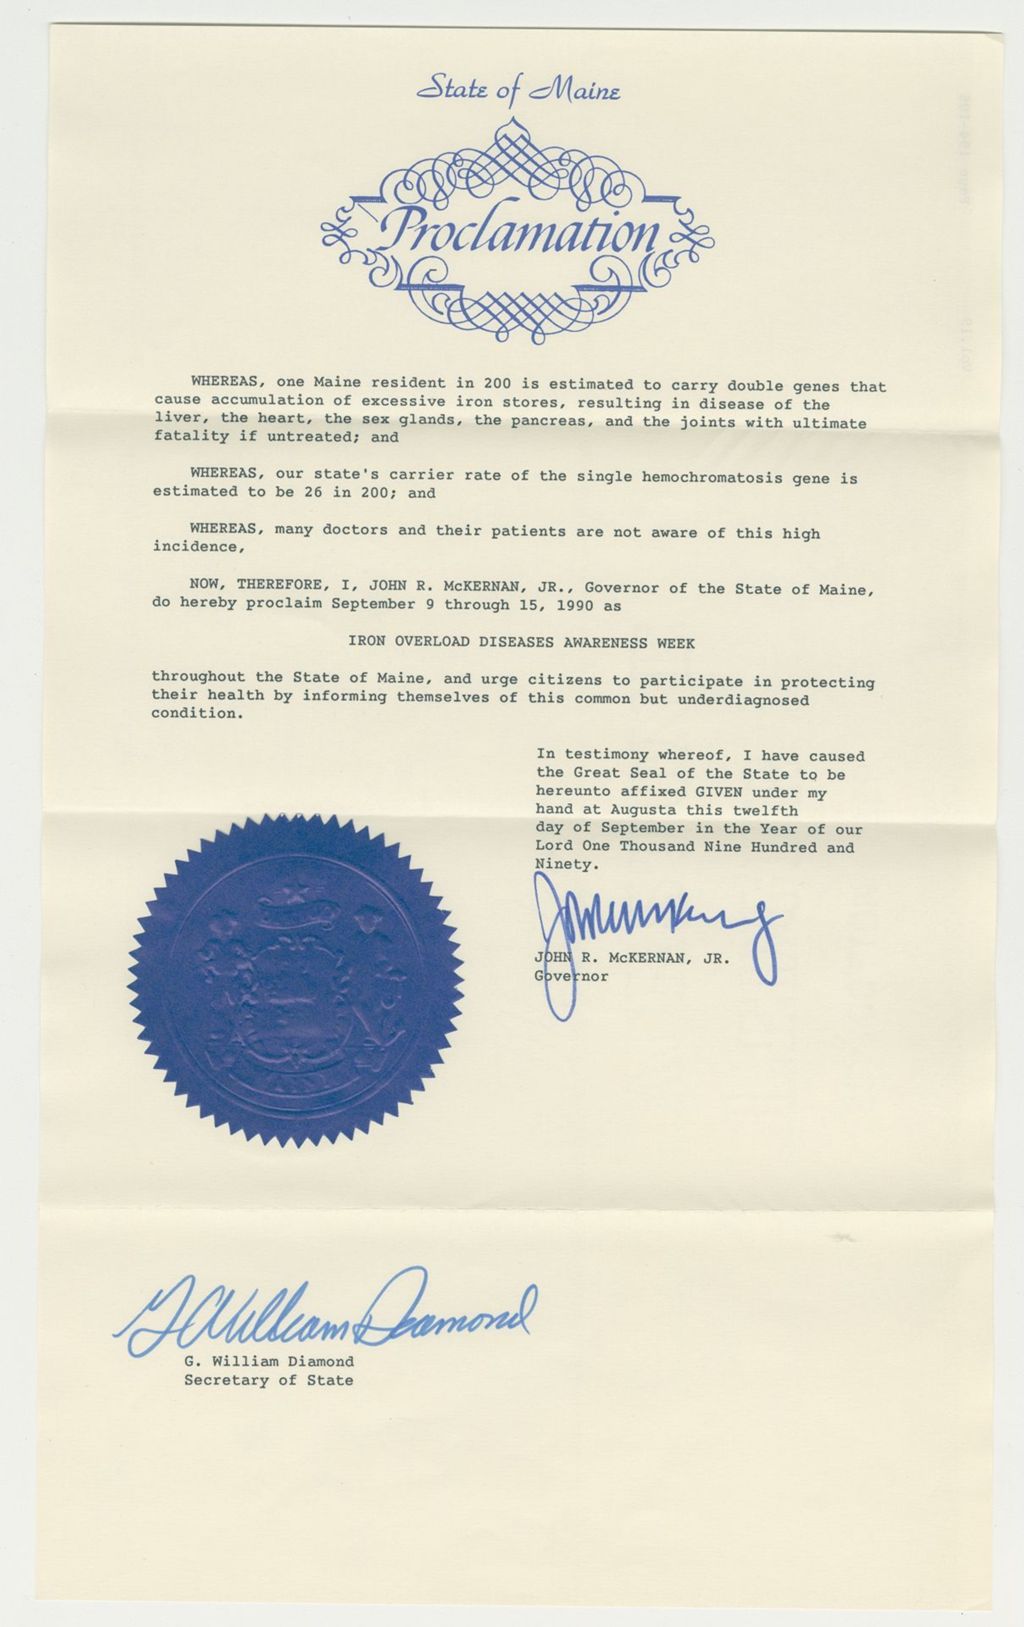 State of Maine
Proclamation
WHEREAS, one Maine resident in 200 is estimated to carry double genes that
cause accumulation of excessive iron stores, resulting in disease of the
liver, the heart, the sex glands, the pancreas, and the joints with ultimate
fatality if untreated; and
WHEREAS, our state's carrier rate of the single hemochromatosis gene is
estimated to be 26 in 200; and
WHEREAS, many doctors and their patients are not aware of this high
incidence,
NOW, THEREFORE, I, JOHN R. McKERNAN, JR., Governor of the State of Maine,
do hereby proclaim September 9 through 15, 1990 as
IRON OVERLOAD DISEASES AWARENESS WEEK
throughout the State of Maine, and urge citizens to participate in protecting
their health by informing themselves of this common but underdiagnosed
condition.
In testimony whereof, I have caused
the Great Seal of the State to be
hereunto affixed GIVEN under my
hand at Augusta this twelfth
day of September in the Year of our
Lord One Thousand Nine Hundred and
Ninety.
JOHN R. McKERNAN, JR.
Governor
G William Diamond
G. William Diamond
Secretary of State